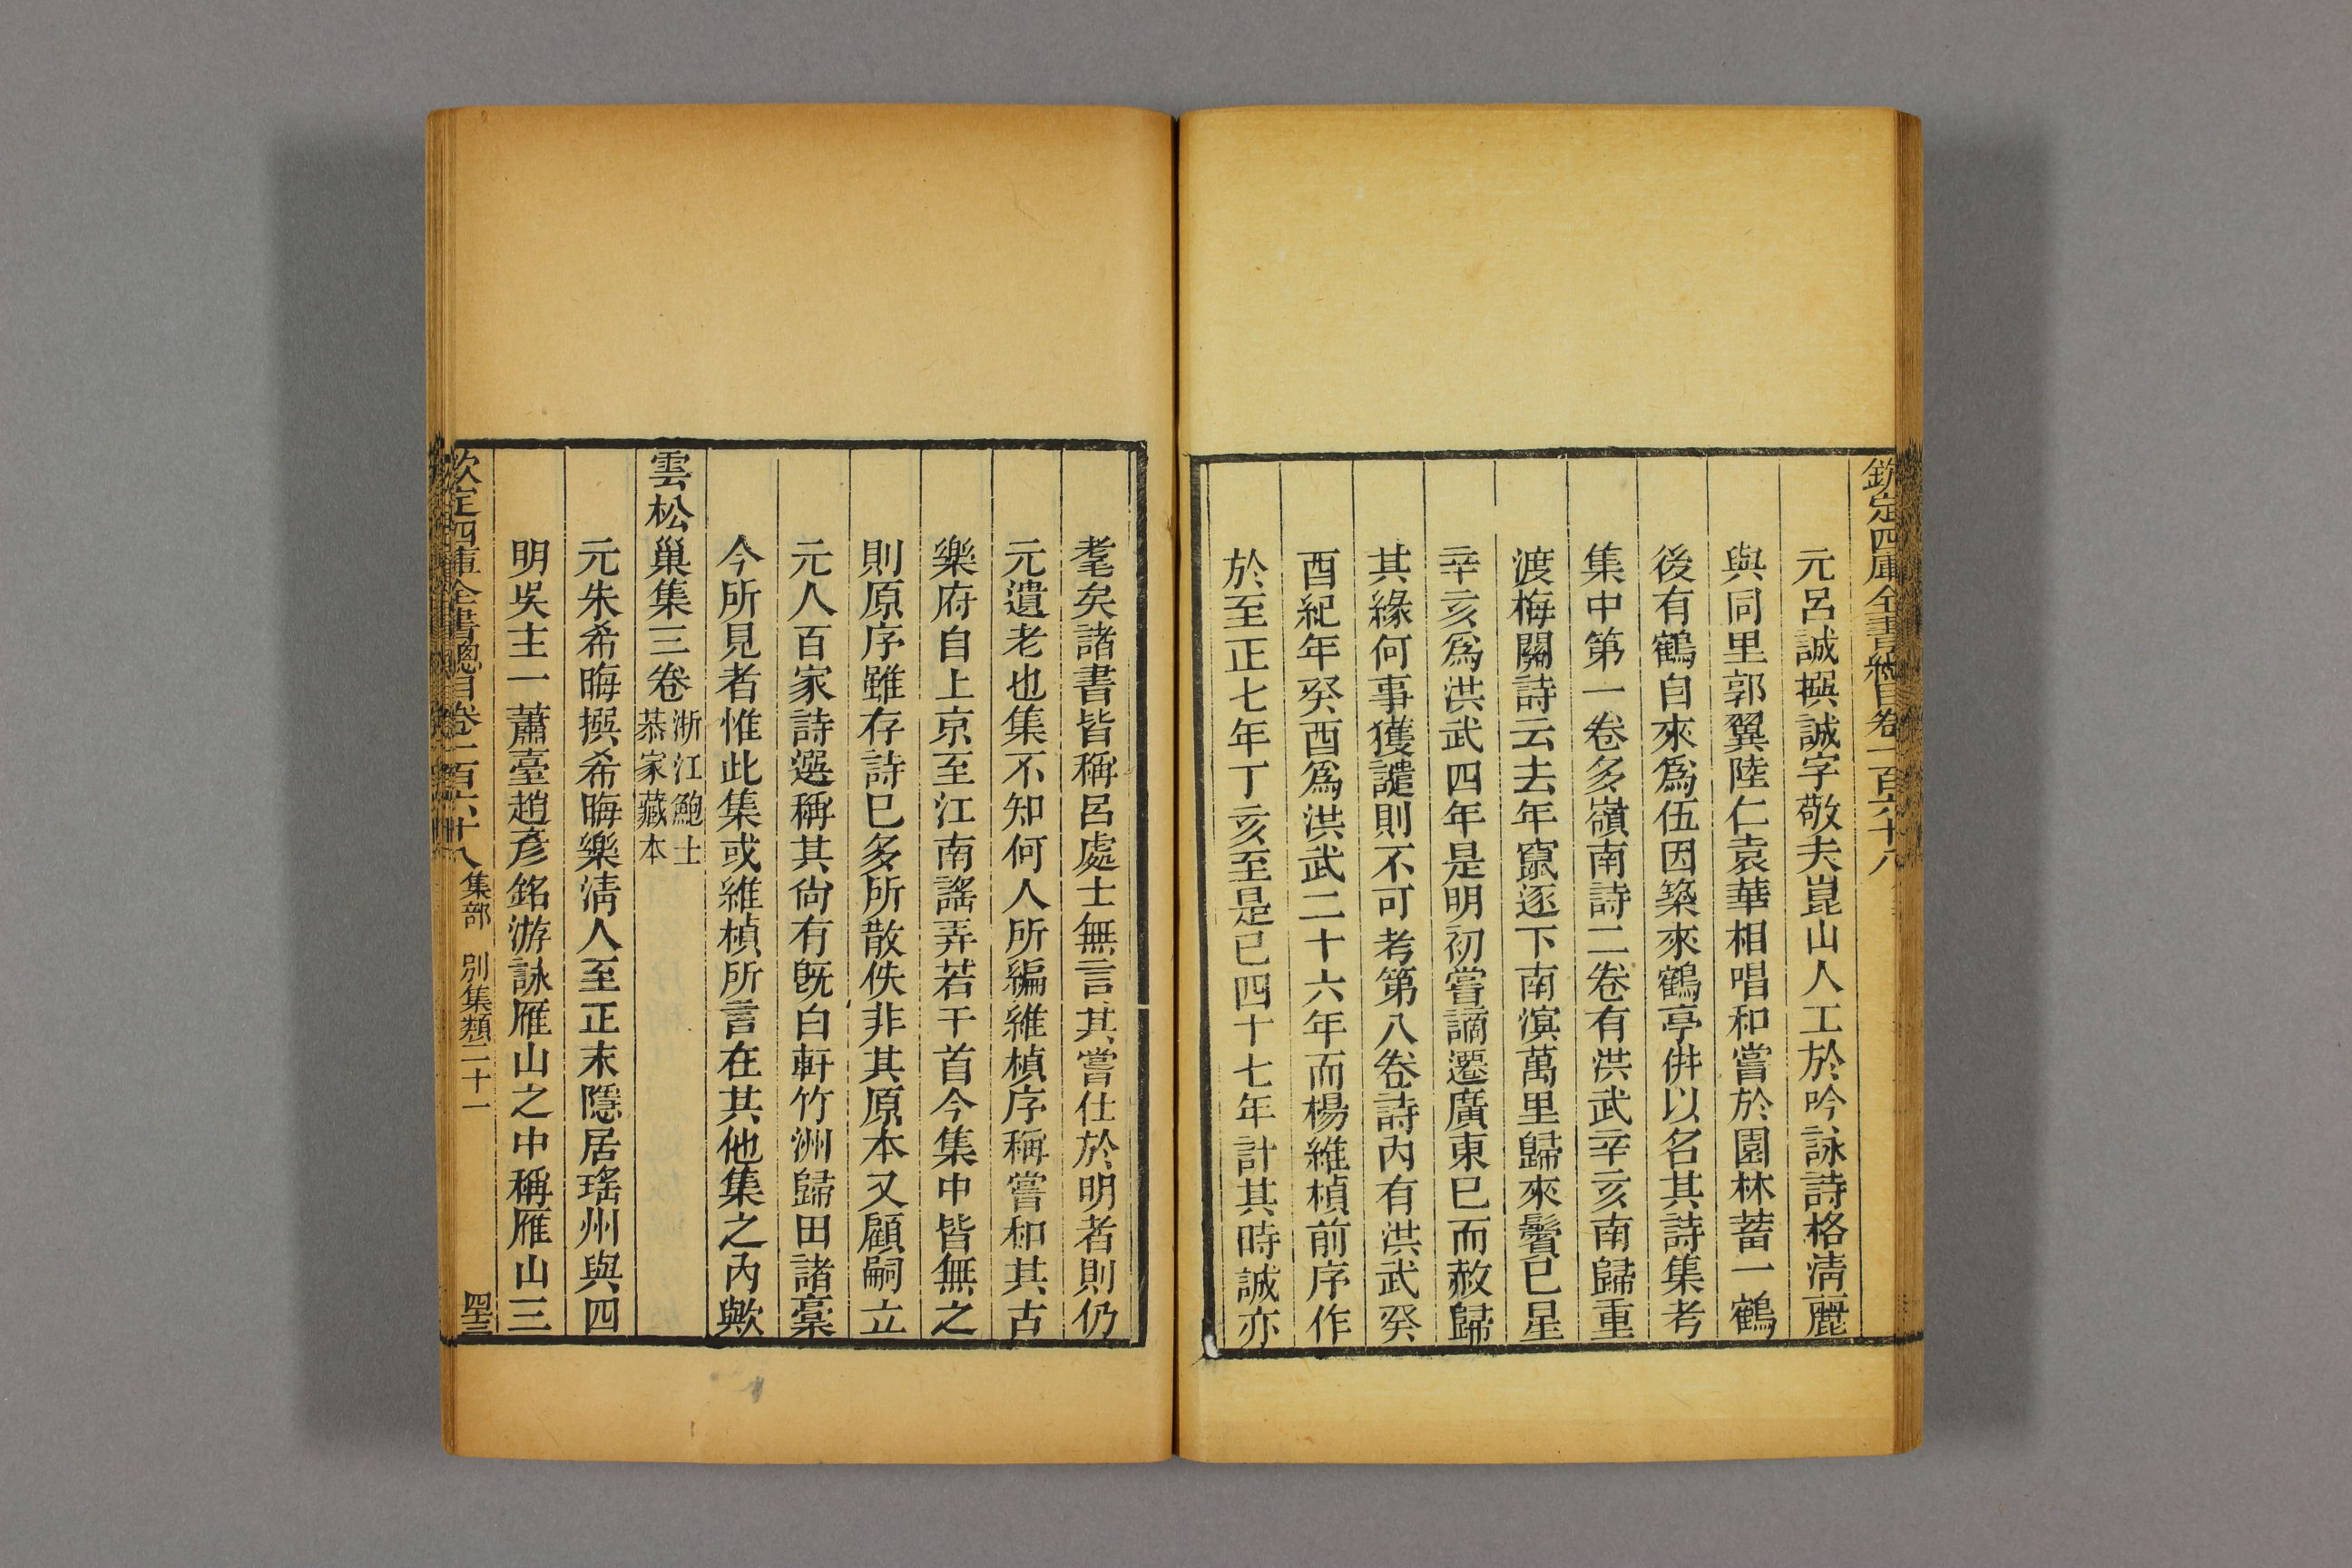 欽定四庫全書總目卷一百六十八
元呂誠撰誠字敬夫崑山人工於吟詠詩格淸麗
與同里郭翼陸仁袁華相唱和嘗於園林蓄一鶴
後有鶴自來爲伍因築來鶴亭倂以名其詩集考
集中第一卷多嶺南詩二卷有洪武辛亥南歸重
渡梅關詩云去年竄逐下南溟萬里歸來鬢已星
辛亥爲洪武四年是明初嘗謫遷廣東已而赦歸
其緣何事獲譴則不可考第八卷詩內有洪武癸
酉紀年癸酉爲洪武二十六年而楊維楨前序作
於至正七年丁亥至是已四十七年計其時誠亦
耄矣諸書皆稱呂處士無言其嘗仕於明者則仍
元遺老也集不知何人所編維楨序稱嘗和其古
樂府自上京至江南謠弄若干首今集中皆無之
則原序雖存詩已多所散佚非其原本又顧嗣立
元人百家詩選稱其尙有旣白軒竹洲歸田諸稾
今所見者惟此集或維楨所言在其他集之內歟
雲松巢集三卷浙江鮑士恭家藏本
元朱希晦撰希晦樂淸人至正末隱居瑤州與四
明吳主一蕭臺趙彥銘游詠雁山之中稱雁山三
欽定四庫全書總目卷一百六十八 集部 別集類二十一 四十三